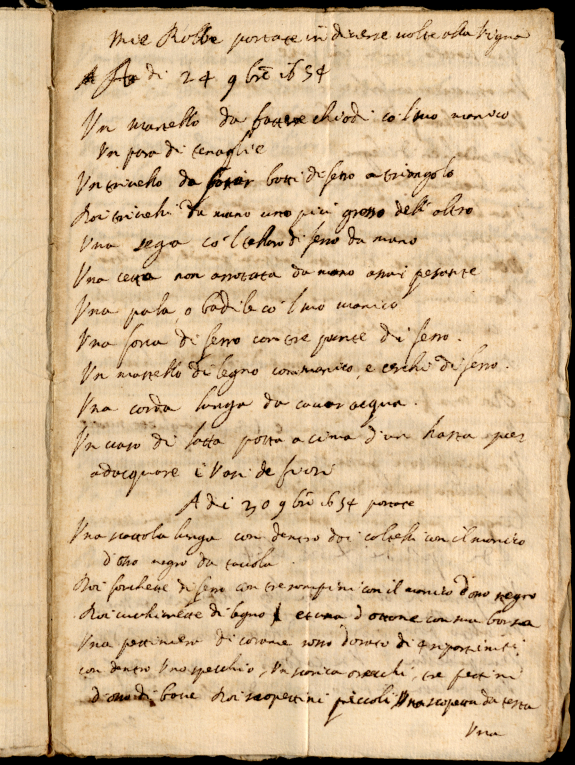 Mie Robbe portate in diverse volte alla vigna
A di 24 9bre 1654
Un martello da battere chiodi co'l suo manico
Un para di tenaglie
Un trivello da botti di ferro a triangolo
Doi trivelli da mano uno più grosso dell'altro
Una sega co'l telaro di ferro da mano
Una cetta non arrotata da mano assai pesante
Una pala o badile co'l suo manico
Una forca di ferro con tre punte di ferro.
Un martello di legno con manico, e cerchi di ferro.
Una corda lunga da cavar acqua.
Un vaso di latta posta a cima d'un hasta per
adacquare i Vasi de fiori
A di 30 9bre 1654 portate
Una scattola lunga con dentro doi coltelli con il manico
d'osso negro da tavola.
Doi forchette di ferro con tre rampini con il manico d'osso negro
Doi cucchiarette di legno et una d'ottone con sua borsa
Una pettiniera di corame rosso dorato di
con dentro Uno specchio, Un storica orecchi, tre pettini
d'osso di bove Doi scopettini piccoli, Una scopetta da testa
Una